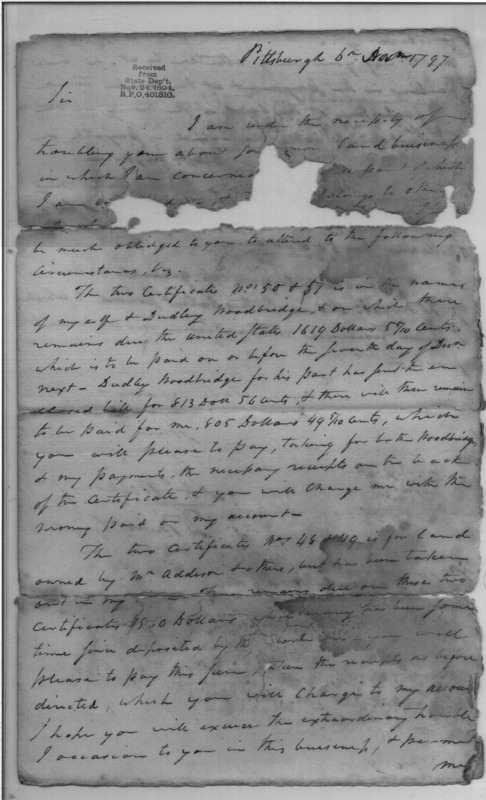 Pittsburgh 6th Nov. 1797
Received
from
State Dep't.
Nov. 24, 1894,
R.P.O. 401310.
Sir
I am under the necessity of
troubling you about some more land business
in which I am concerned part of which
I am belongs to others
be much obliged to you to attend to the following
Circumstances, viz.
The two Certificates Nos. 50 & 51 is in the names
of myself & Dudley Woodbridge, & on which there
remains due the United States 1619 Dollars 5 Cents
which is to be paid on or before the seventh day of Decr
next – Dudley Woodbridge for his part has sent the en
closed bill for 813 Doll 56 Cents, & there will then remain
to be paid for me, 805 Dollars 49 Cents, which
you will please to pay, taking for both Woodbridge
& my payments, the necessary receipts on the back
of the Certificate, & you will Charge me with the
money paid on my account –
The two Certificates Nos 48 & 49 is for land
owned by Mr Addison & others, but has been taken
out in my remains due on these two
Certificates Dollars money has been some
time since deposited by the you will
please to pay this sum, the receipts as before
directed, which you will Charge to my account
I hope you will excuse the extraordinary trouble
I occasion to you in this business, & permit
me